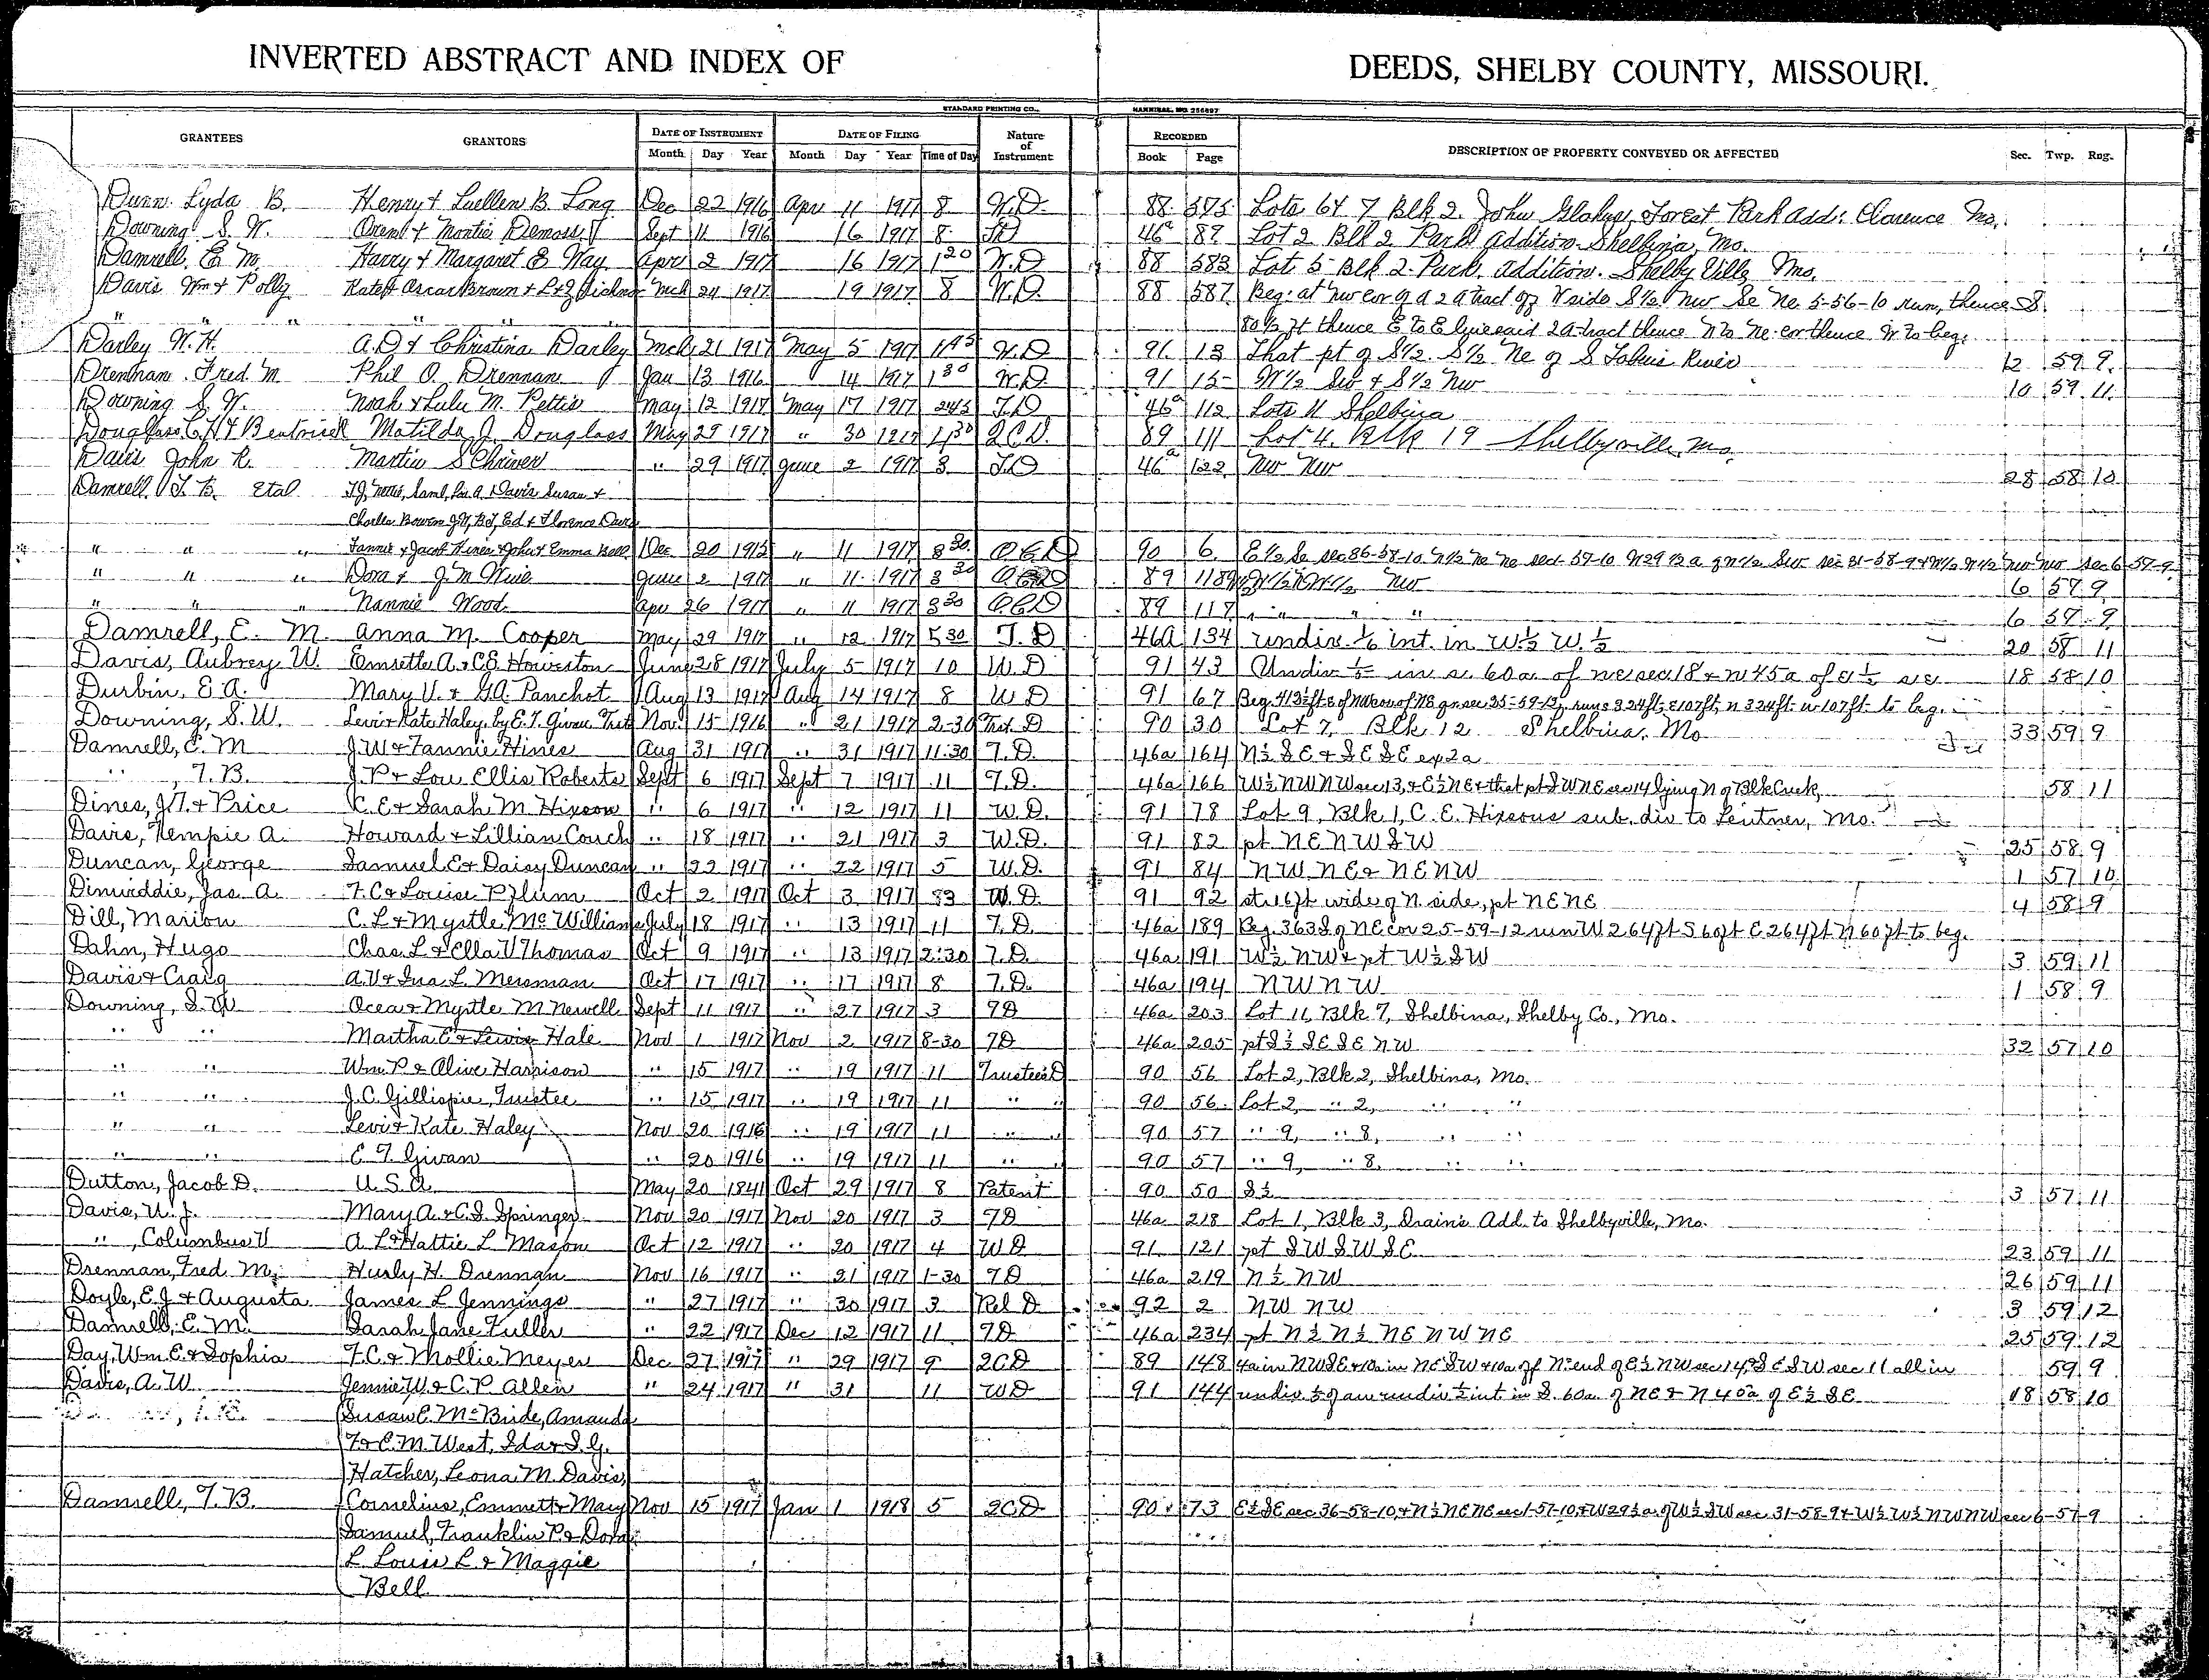 INVERTED ABSTRACT AND INDEX OF DEEDS, SHELBY COUNTY, MISSOURI.
STANDARD PRINTING CO., HANNIBAL, MO.
GRANTEES GRANTORS DATE OF INSTRUMENT DATE OF FILING Nature of Instrument RECORDED DESCRIPTION OF PROPERTY CONVEYED OR AFFECTED Sec. Twp. Rng.
Month Day Year Month Day Year Time of Day Book Page
Dunn Lyda B. Henry & Luellen B. Long Dec 22 1916 Apr 11 1917 8 W.D. 88 575 Lots 6 & 7 Blk 2. John Forest Park Add: Clarence Mo.
Downing S. W. & Montie Demoss Sept 11 1916 16 1917 8 46a 87 Lot 2 Blk 2 Park Addition Shelbina, Mo.
Damrell, E. M. Harry & Margaret E Way Apr 2 1917 16 1917 1 20 W.D 88 583 Lot 5 Blk 2. Park Addition. Shelbyville Mo.
Davis Wm & Polly Kate & Oscar & Mch 24 1917 19 1917 8 W.D. 88 587 Beg: at nw cor of a 2 a tract off N side S½ nw Se Ne 5-56-10 run, thence S.
" " " " " 80½ ft thence E to E line said 2 a tract thence N to Ne cor thence W to beg.
Darley W. H. A. D & Christina Darley Mch 21 1917 May 5 1917 1 45 W.D 91 13 That pt of S½ S½ Ne of S Fabius River 12 59 9.
Drennan Fred M Phil O. Drennan Jan 13 1916 14 1917 1 30 W.D. 91 15 W½ Sw & S½ Nw 10 59 11.
Downing S. W. Noah & Lulu M. Pettis May 12 1917 May 17 1917 2 45 T.D 46a 112 Lots 11 Shelbina
Douglass C. H & Beatrice Matilda J. Douglass May 29 1917 " 30 1917 1 30 Q.C.D. 89 111 Lot 4. Blk 19 Shelbyville, Mo.
Davis John R. Martin SChriver " 29 1917 June 2 1917 3 T.D 46a 122 Nw Nw 28 58 10
Damrell T. B. Etal Saml, A. Davis Susan &
Charles Bowen Ed & Florence Davis
" " " Fannie & Jacob Hines & John & Emma Bell Dec 20 1915 " 11 1917 8 30 Q.C.D 90 6 E½ Se sec 36-58-10 N½ Ne Ne sec 1-57-10 W29½ a of W½ Sw sec 31-58-9 & W½ W½ Nw Nw sec 6-57-9
" " " Dora & J. M June 2 1917 " 11 1917 8 30 Q.C.D 89 118 Nw 6 57 9
" " " Nannie Wood Apr 26 1917 " 11 1917 8 30 Q.C.D 89 117 " " " " 6 57 9
Damrell, E. M. Anna M. Cooper May 29 1917 " 12 1917 5 30 T.D 46a 134 undiv. 1/6 int. in W.½ W.½ 20 58 11
Davis, Aubrey W. Emsette A. & C. E. Howerton June 28 1917 July 5 1917 10 W.D 91 43 Undiv 1/5 in s. 60 a of ne sec 18 & n 45 a of e ½ se 18 58 10
Durbin, E. A. Mary V. & G. A. Panchot Aug 13 1917 Aug 14 1917 8 W D 91 67 Beg. 413½ ft E of NW cor of NE sec 35-59-12, run s 324 ft. E 107 ft, n 324 ft w 107 ft to beg.
Downing, S. W. Levi & Kate Haley, by E. T. Givan, Trst Nov. 15 1916 " 21 1917 2-30 Trst. D 90 30 Lot 7, Blk 12 Shelbina, Mo
Damrell, E. M J. W & Fannie Hines Aug 31 1917 " 31 1917 11:30 T.D. 46a 164 N½ S E & S E S E ex 2a 33 59 9
" , T. B. J. P & Lou Ellis Roberts Sept 6 1917 Sept 7 1917 11 T.D. 46a 166 W½ N W N W sec 13, & E½ N E & that pt S W N E sec 14 lying N of Blk Creek, 58 11
Dines, J. T. & Price C. E & Sarah M. Hixson " 6 1917 " 12 1917 11 W.D. 91 78 Lot 9, Blk 1, C. E. Hixsons sub. div to Lentner, Mo.
Davis, Kempie A. Howard & Lillian Couch " 18 1917 " 21 1917 3 W.D. 91 82 pt N E N W S W 25 58 9
Duncan, George Samuel E & Daisy Duncan " 22 1917 " 22 1917 5 W.D. 91 84 N W N E & N E N W 1 57 10
Dinwiddie, Jas. A. F. C & Louise Pflum Oct 2 1917 Oct 3 1917 W.D. 91 92 st. 16 ft wide of N. side, pt N E N E 4 58 9
Dill, Marion C. L & Myrtle McWilliams July 18 1917 " 13 1917 11 T.D. 46a 189 Beg. 363 S of N E cor 25-59-12 run W 264 ft S 60 ft E 264 ft N 60 ft to beg.
Dahn, Hugo Chas. L & Ella V Thomas Oct 9 1917 " 13 1917 2:30 T.D. 46a 191 W½ N W & pt W½ S W 3 59 11
Davis & Craig A. V & Ina L. Mersman Oct 17 1917 " 17 1917 8 T.D. 46a 194 N W N W 1 58 9
Downing, S. W Ocea & Myrtle M Newell Sept 11 1917 " 27 1917 3 T D 46a 203 Lot 11, Blk 7, Shelbina, Shelby Co., Mo.
" " Martha E & Lewis Hale Nov 1 1917 Nov 2 1917 8-30 T D 46a 205 pt S½ S E S E N W 32 57 10
" " Wm. P & Alice Harrison " 15 1917 " 19 1917 11 Trustees D 90 56 Lot 2, Blk 2, Shelbina, Mo.
" " J. C. Gillispie, Trustee " 15 1917 " 19 1917 11 " " 90 56 Lot 2, " 2, " "
" " Levi & Kate Haley Nov 20 1916 " 19 1917 11 " " 90 57 " 9, " 8, " "
" " E. T. Givan " 20 1916 " 19 1917 11 " " 90 57 " 9, " 8, " "
Dutton, Jacob D. U. S. A. May 20 1841 Oct 29 1917 8 Patent 90 50 S½ 3 57 11
Davis, U. J. Mary A. & C. S. Springer Nov 20 1917 Nov 20 1917 3 T D 46a 218 Lot 1, Blk 3, Drain's Add. to Shelbyville, Mo.
" , Columbus V A. L & Hattie L. Mason Oct 12 1917 " 20 1917 4 W D 91 121 pt S W S W S E 23 59 11
Drennan, Fred M. Hurly H. Drennan Nov 16 1917 " 21 1917 1-30 T D 46a 219 N½ N W 26 59 11
Doyle, E. J & Augusta James L Jennings " 27 1917 " 30 1917 3 Rel D 92 2 N W N W 3 59 12
Damrell, E. M. Sarah Jane Fuller " 22 1917 Dec 12 1917 11 T D 46a 234 pt N½ N½ N E N W N E 25 59 12
Day, Wm E & Sophia F. C. & Mollie Meyer Dec 27 1917 " 29 1917 9 2CD 89 148 4a in N W S E & 10a in N E S W & 10a off N end of E½ N W sec 14, & S E S W sec 11 all in 59 9
Davis, A. W. Jennie W. & C. P. Allen " 24 1917 " 31 11 W D 91 144 undiv ½ of an undiv ½ int in S. 60a of N E & N 40a of E½ S E 18 58 10
Susan E. McBride, Amanda
F. & E. M. West, Ida & S. G.
Hatcher, Leona M. Davis,
Damrell, T. B. Cornelius, Emmett & Mary Nov 15 1917 Jan 1 1918 5 2CD 90 73 E½ S E sec 36-58-10, & N½ N E N E sec 1-57-10, & W 29½ a. of W½ S W sec 31-58-9 & W½ W½ N W N W sec 6-57-9
Samuel, Franklin P. & Dora
L. Louis L. & Maggie
Bell